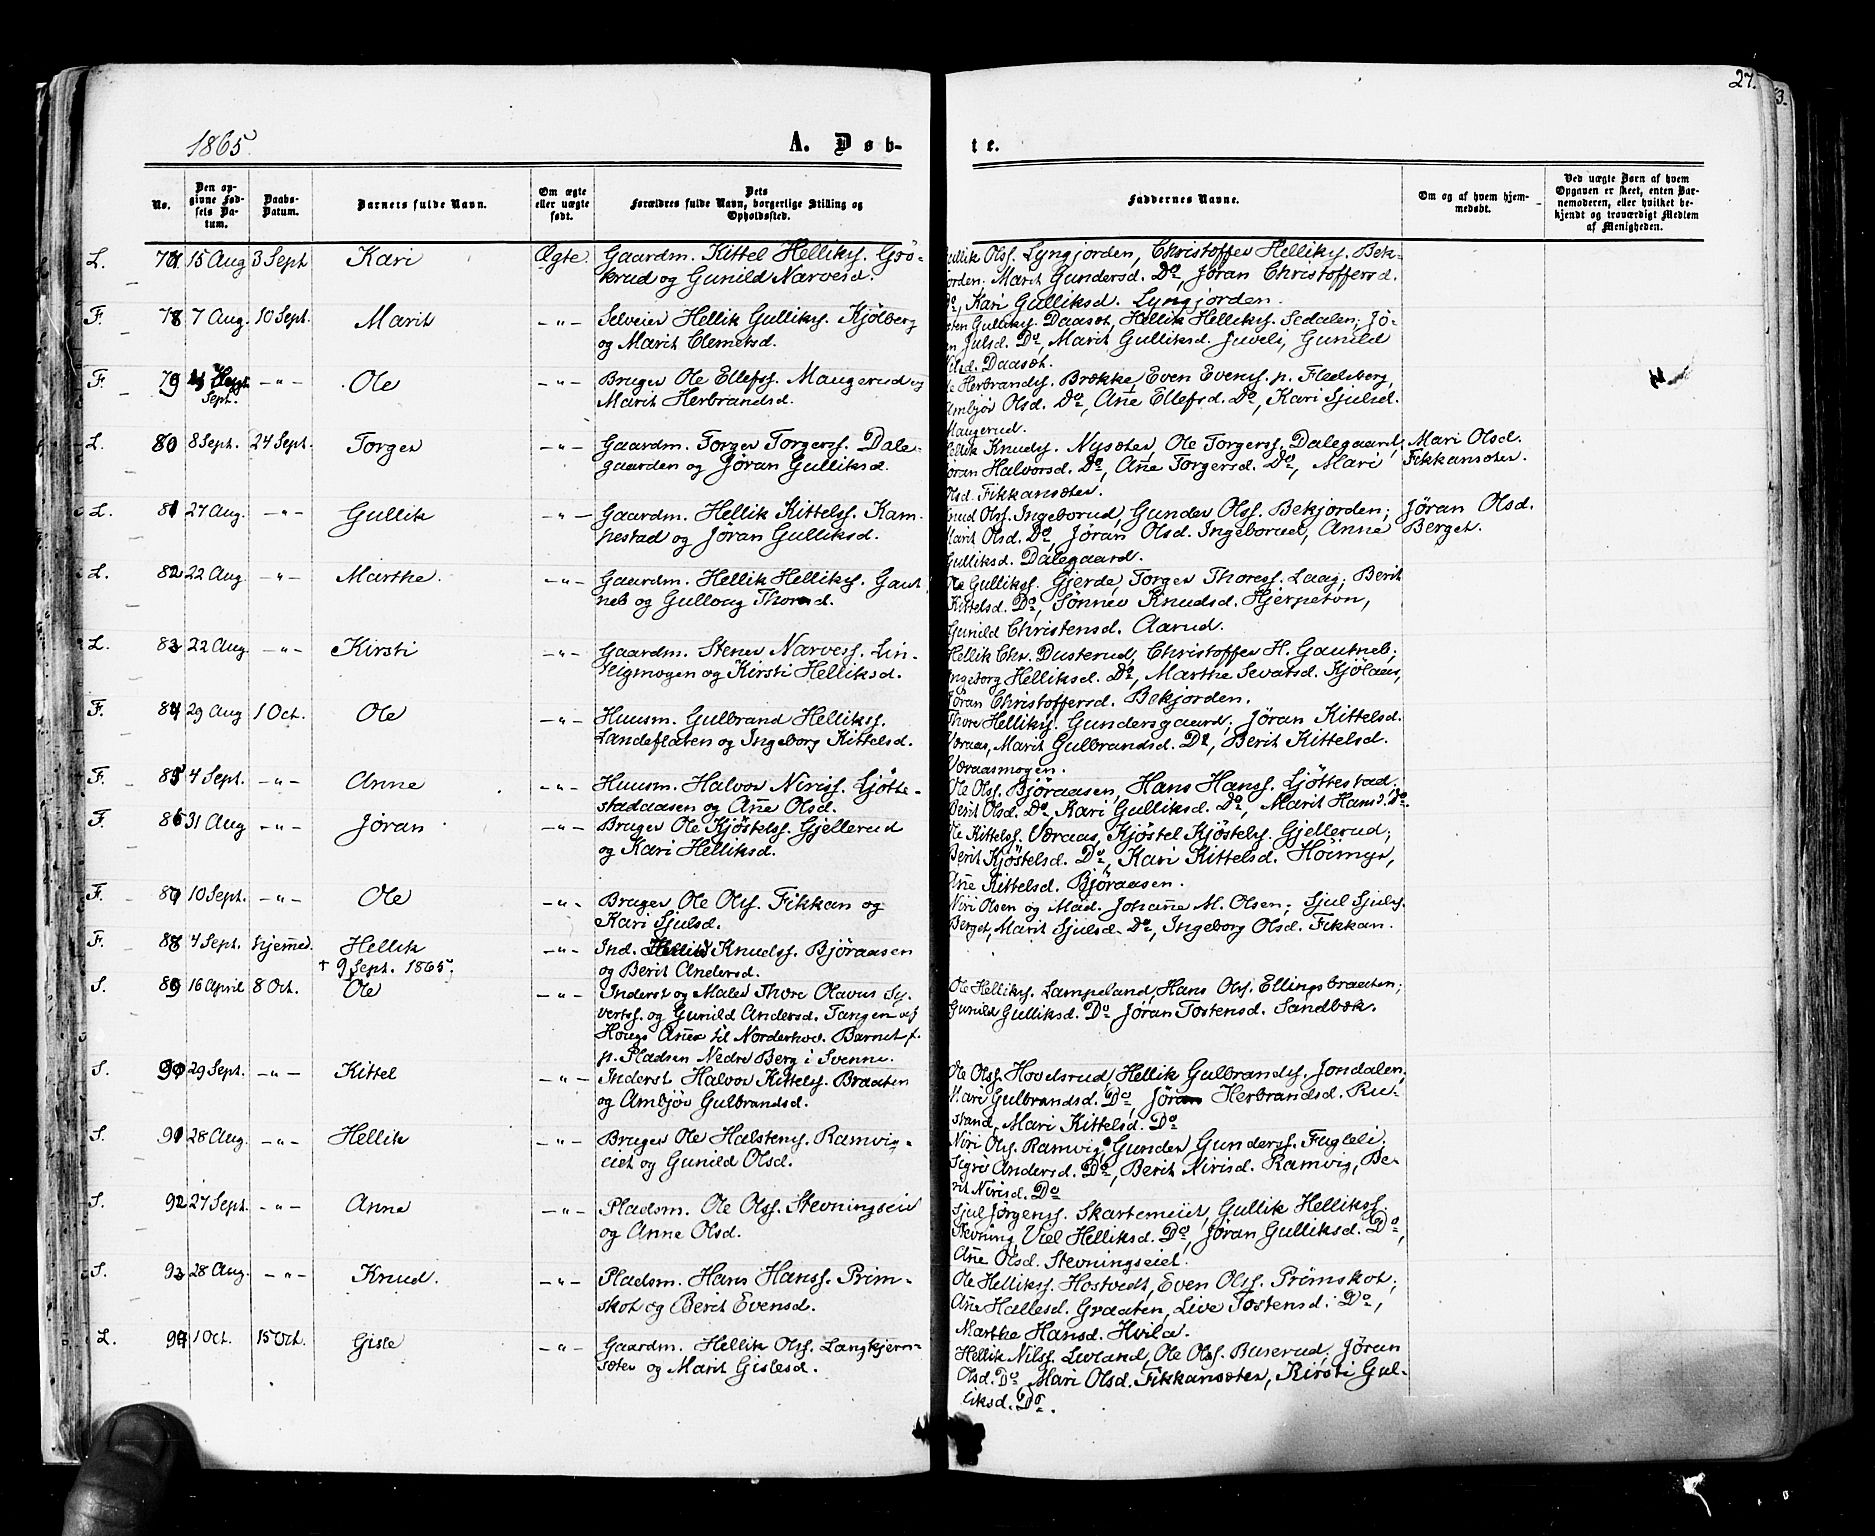 27.
3.
1865.
A. Døb-
te.
No.
Den op-
givne Fød-
sels Da-
tum.
Daabs-
Datum.
Barnets fulde Navn.
Om ægte
eller uægte
født.
Dets
Forældres fulde Navn, borgerlige Stilling og
Opholdssted.
Faddernes Navne.
Om og af hvem hjem-
medøbt.
Ved uægte Børn af hvem
Opgaven er skeet, enten Bar-
nemoderen, eller hvilket be-
kjendt og troværdigt Medlem
af Menigheden.
L. 77 15 Aug 3 Sept Kari Ægte Gaardm. Kittel Helliks.
krud og Gunild Narvesd.
Gullik Olss. Lyngjorden, Christoffer Helliks. Bek-
jorden, Marit Gundersd. Do, Jøran Christoffersd.
Do, Kari Gulliksd. Lyngjorden.
F. 78 7 Aug. 10 Sept. Marit -"- Selveier Hellik Gulliks. Kjölberg
og Marit Clemetsd.
Gulliks. Daasæt, Hellik Helliks. Sedalen; Jø-
ran Julsd. Do, Marit Gulliksd. Juveli, Gunild
Daasæt.
F. 79 Sept. -"- Ole -"- Bruger Ole Ellefss. Maugerud og
Marit Herbrandsd.
Ole Herbrands. Brække, Even Evens. p. Flesberg,
Ambjør Olsd. Do, Ane Ellefsd. Do, Kari Sjulsd.
Maugerud.
L. 80 8 Sept. 24 Sept. Torger -"- Gaardm. Torger Torgerss. Dale-
gaarden og Jøran Gulliksd.
Hellik Knuds. Nysæter, Ole Torgerss. Dalegaard,
Jøran Halvorsd. Do, Ane Torgersd. Do, Mari
Olsd. Fikkansæter.
Mari Olsd.
Fikkansæter.
L. 81 27 Aug. -"- Gullik -"- Gaardm. Hellik Kittelss. Kam-
pestad og Jøran Gulliksd.
Knud Olss. Ingeborud, Gunder Olss. Bekjorden;
Marit Olsd. Do, Jøran Olsd. Ingeborud, Anne
Gulliksd. Dalegaard.
Jøran Olsd.
Berget.
L. 82 22 Aug -"- Marthe. -"- Gaardm. Hellik Helliks. Gaut-
neb og Gullaug Thoresd.
Ole Gulliks. Gjerde, Torger Thoress. Laag; Berit
Kittelsd. Do, Sønnev Knudsd. Hjerpetøn,
Gunild Christensd. Aarud.
L. 83 22 Aug -"- Kirsti -"- Gaardm. Stener Narvess. Lin-
tligmogen og Kirsti Helliksd.
Hellik Chr. Dusterud, Christoffer H. Gautneb;
Ingeborg Helliksd. Do, Marthe Sevatsd. Kjølaas,
Jøran Christoffersd. Bekjorden.
F. 84 29 Aug 1 Oct. Ole -"- Huusm. Gulbrand Helliks.
Landeflaten og Ingeborg Kittelsd.
Thore Helliks. Gundersgaard; Jøran Kittelsd.
Væraas, Marit Gulbrandsd. Do, Berit Kittelsd.
Væraasmogen.
F. 85 4 Sept. -"- Anne -"- Huusm. Halvor Niriss. Ljøtte-
stadaasen og Ane Olsd.
Ole Olss. Bjøraasen, Hans Hanss. Ljøttestad;
Berit Olsd. Do, Kari Gulliksd. Do, Marit Hansd. Do.
F. 86 31 Aug -"- Jøran -"- Bruger Ole Kjöstelss. Gjellerud
og Kari Helliksd.
Ole Kittelss. Væraas, Kjøstel Kjøstels. Gjellerud;
Berit Kjøstelsd. Do, Kari Kittelsd. Høimyr,
Ane Kittelsd. Bjøraasen.
F. 87 10 Sept. -"- Ole -"- Bruger Ole Olss. Fikkan og
Kari Sjulsd.
Niri Olsen og Mad. Johanne M. Olsen; Sjul Sjuls.
Berget, Marit Sjulsd. Do, Ingeborg Olsd. Fikkan.
F. 88 4 Sept. hjemme. Hellik
† 9 Sept. 1865.
-"- Ind. Hellik Knudss. Bjøraasen
og Berit Andersd.
S. 89 16 April 8 Oct. Ole -"- Inderst og Maler Thore Olavus Sy-
vertss. og Gunild Andersd. Tangen af
Hougs Anex til Norderhov. Barnet f.
p. Pladsen Nedre Berg i Svenne.
Ole Helliks. Lampeland, Hans Olss. Ellingsbraaten;
Gunild Gulliksd. Do Jøran Tostensd. Sandbæk.
S. 90 29 Sept. -"- Kittel -"- Inderst Halvor Kittels. Braaten
og Ambjør Gulbrandsd.
Ole Olss. Hovelsrud, Hellik Gulbrands. Jondalen,
Kari Gulbrandsd. Do, Jøran Herbrandsd. Ru-
stand, Mari Kittelsd. Do
S. 91 28 Aug. -"- Hellik -"- Bruger Ole Halstens. Ramvig-
eiet og Gunild Olsd.
Niri Olss. Ramvig, Gunder Gunderss. Fugleli;
Sigri Andersd. Do, Berit Nirisd. Ramvig, Be-
rit Nirisd. Do
S. 92 27 Sept. -"- Anne -"- Pladsm. Ole Olss. Stevningseie
og Anne Olsd.
Sjul Jørgens. Skartemeiet, Gullik Helliksss.
Stevning, Viel Helliksd. Do, Jøran Gulliksd. Do,
Ane Olsd. Stevningseiet.
S. 93 28 Aug. -"- Knud. -"- Pladsm. Hans Hanss. Prim-
skot og Berit Evensd.
Ole Helliks. Hostvedt, Even Olss. Prömskot;
Ane Hallesd. Graaten, Live Tostensd. Do,
Marthe Hansd. Hvila.
L. 94 1 Oct. 15 Oct. Gisle -"- Gaardm. Hellik Olss. Langkjern-
sæter og Marit Gislesd.
Hellik Nilss. Livland, Ole Olss. Buserud; Jøran
Olsd. Do Mari Olsd. Fikkansæter, Kirsti Gul-
liksd. Do.